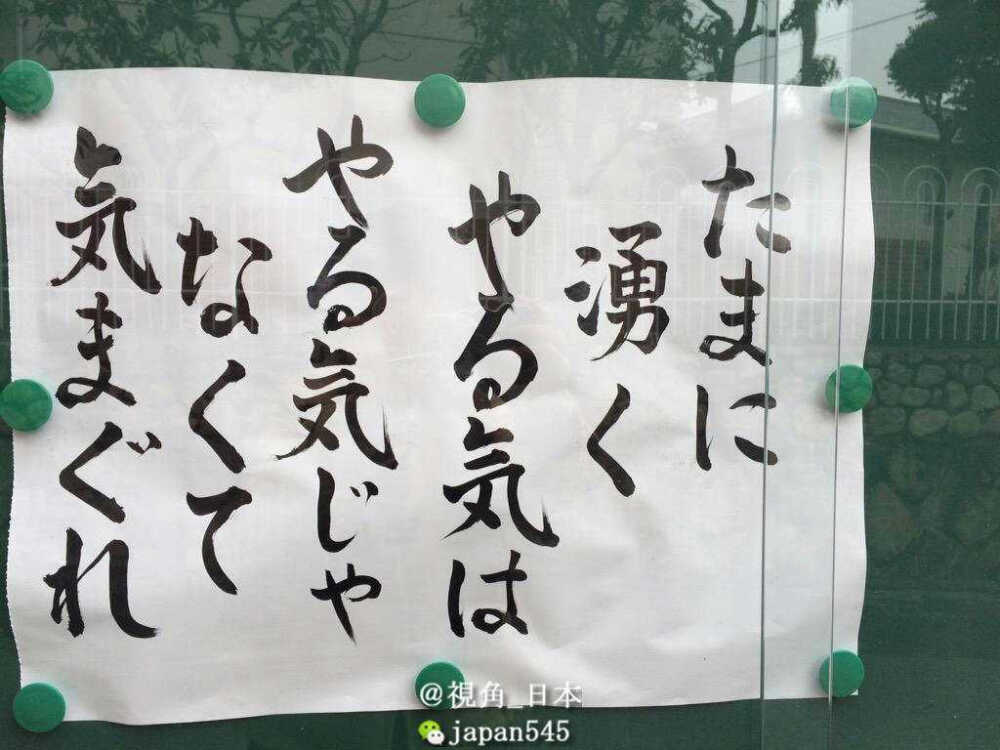 たまに
湧く
やる気は
やる気じゃ
なくて
気まぐれ
@視角_日本
japan545